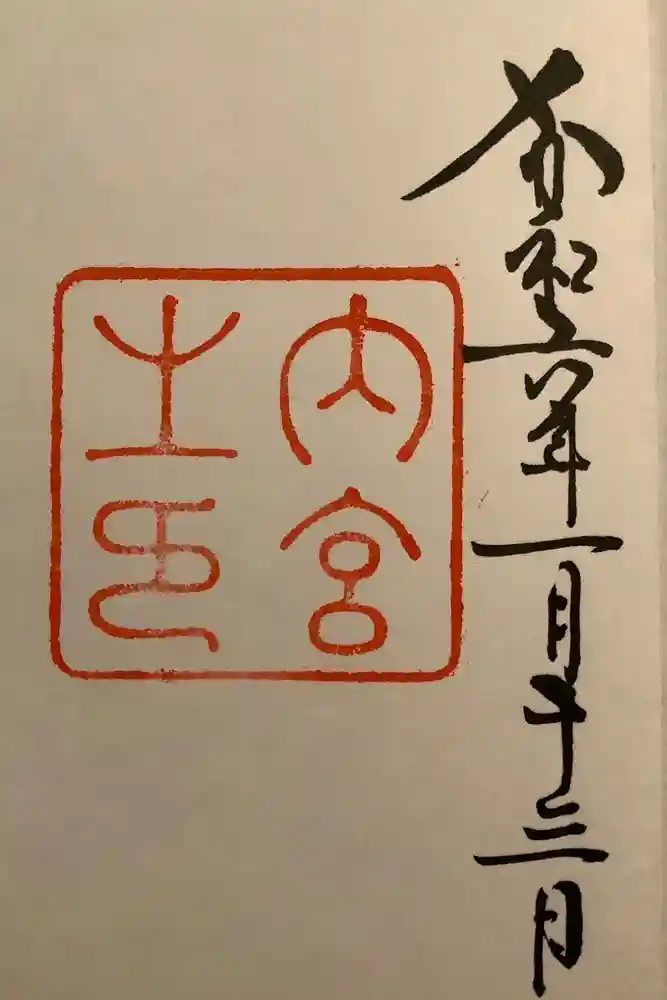 令和六年一月十三日
内宮
之印